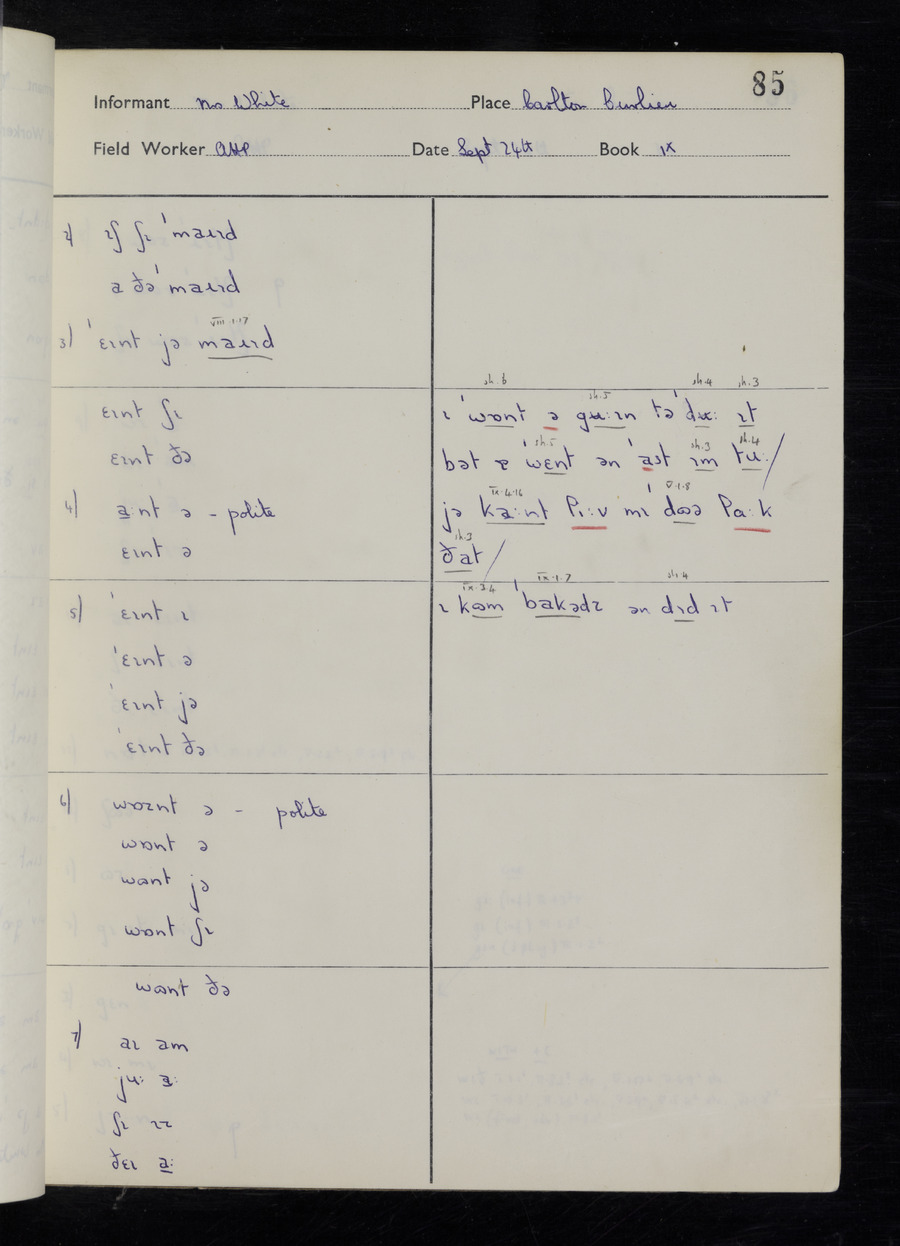 85
Informant Mrs White Place Carlton Curlieu
Field Worker Date Sept 24th Book IX
2) ɪf ʃɪ ˈmaɪɪd
a ðəˈmaɪɪd
VIII.1.17
3) ˈɛɪnt jə maɪɪd
ɛɪnt ʃɪ
ɛɪnt ðə
4) a:nt ə - polite
ɛɪnt ə
5) ˈɛɪnt ɪ
ˈɛɪnt ə
ˈɛɪnt jə
ˈɛɪnt ðə
6) wɒznt ə - polite
wɒnt ə
wɒnt jə
wɒnt ʃɪ
wɒnt ðə
7) aɪ am
ju: a:
ʃɪ ɪz
ðɛɪ a:
sh.6 sh.5 sh.4 sh.3
ɪ ˈwɒnt ə gu:ɪn təˈdu: ɪt
sh.5 sh.3 sh.4
bət ɐ ˈwɛnt ən ˈast ɪm tu:/
IX.4.16 V.1.8
jə ka:nt li:v mɪ ˈdɒə la:k
sh.3
ðat/
IX.3.4 IX.1.7 sh.4
ɪ kəm ˈbakədz ən dɪd ɪt